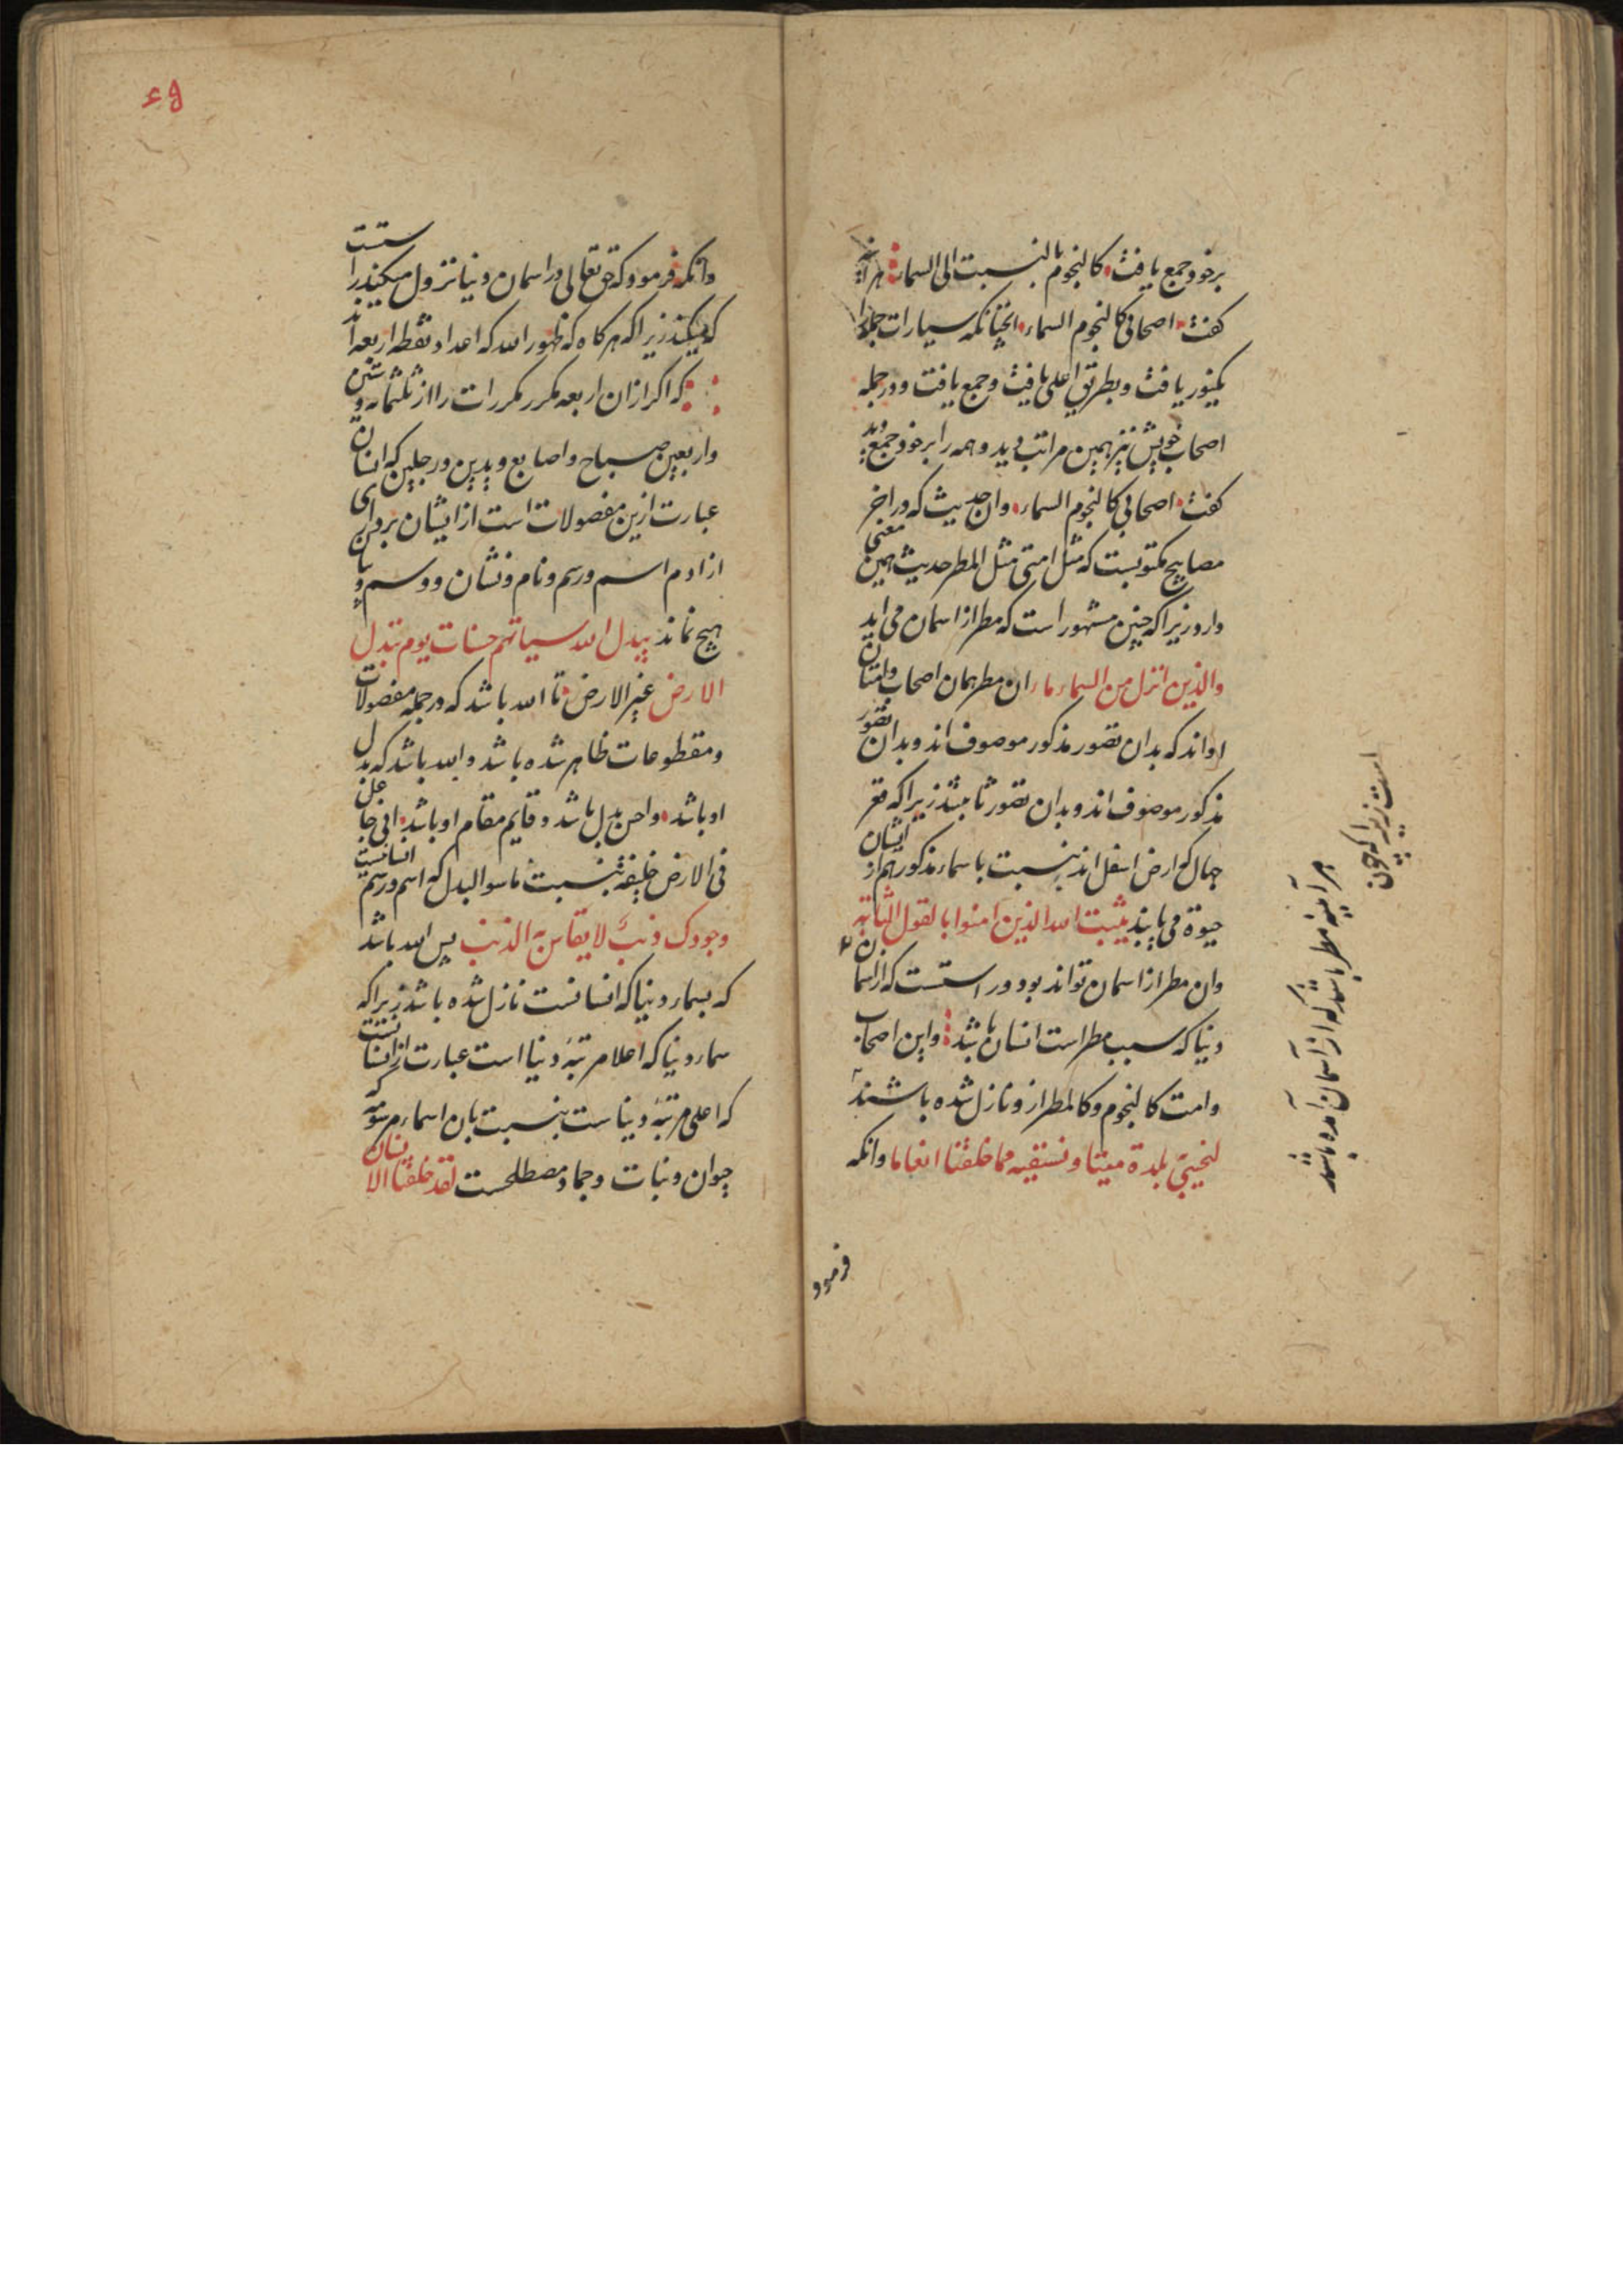 برخود جمع یافت کالنجوم بالنسبت الی السماء هراینه
کفت اصحابی کالنجوم السماء انچنانکه سیارات جمله را
یکنور یافت وبطریق اعلی یافت وجمع یافت ودر جمله
اصحاب خویش نیز همین مراتب دید وهمه را برخود جمع دید
کفت اصحابی کالنجوم السماء وان حدیث که در اخر
مصابیح مکتوبست که مثل امتی مثل المطر حدیث همین معنی
دارد زیراکه چنین مشهور است که مطر از اسمان می اید
والذین انزل من السماء ماء ان مطر همان اصحاب وامتان
اواند که بدان تصور مذکور موصوف اند وبدان تصور
مذکور موصوف اند وبدان تصور ثابتند زیراکه مقر
جهال که ارض اسفل اند بنسبت باسماء مذکور هم از ایشان
حیوة می یابند یثبت الله الذین امنوا بالقول الثابت
وان مطر از اسمان تواند بود ور استست که از اسمان
دنیا که سبب مطر است انسان باشد واین اصحاب
وامت کالنجوم وکالمطر ازو نازل شده باشند
لنحیی بلدة میتا ونسقیه مما خلقنا انعاما وانکه
فرمود
امت زیرا که چون
هر آینه مطر باشد که از آسمان آمده باشد
٤٩
وانکه فرمود که حق تعالی در اسمان دنیا نزول میکند راستست
که میکند زیراکه هرکاه که ظهور الله که اعداد نقطه اربعه اند
که اکر ازان اربعه مکرر مکررات را از ثلثمایه وستین
واربعین صباح واصابع ویدین ورجلین که انسان
عبارت ازین مفصولات است از ایشان برداری
از ادم اسم ورسم ونام ونشان ووسم وبیان
هیچ نماند یبدل الله سیاتهم حسنات یوم تبدل
الارض غیر الارض تا الله باشد که در جمله مفصولات
ومقطوعات ظاهر شده باشد والله باشد که بدل
او باشد واحن بدل باشد وقایم مقام او باشد انی جاعل
فی الارض خلیفة بنسبت ماسوا لبدل که اسم ورسم انسانیست
وجودک ذنبٌ لا یقاس به الذنب پس الله باشد
که بسماء دنیا که انسانست نازل شده باشد زیراکه
سماء دنیا که اعلا مرتبهٔ دنیا است عبارت از انسانست
که اعلی مرتبهٔ دنیاست بنسبت بان اسماء مرسومه که
حیوان ونبات وجماد مصطلحست لقد خلقنا الانسان